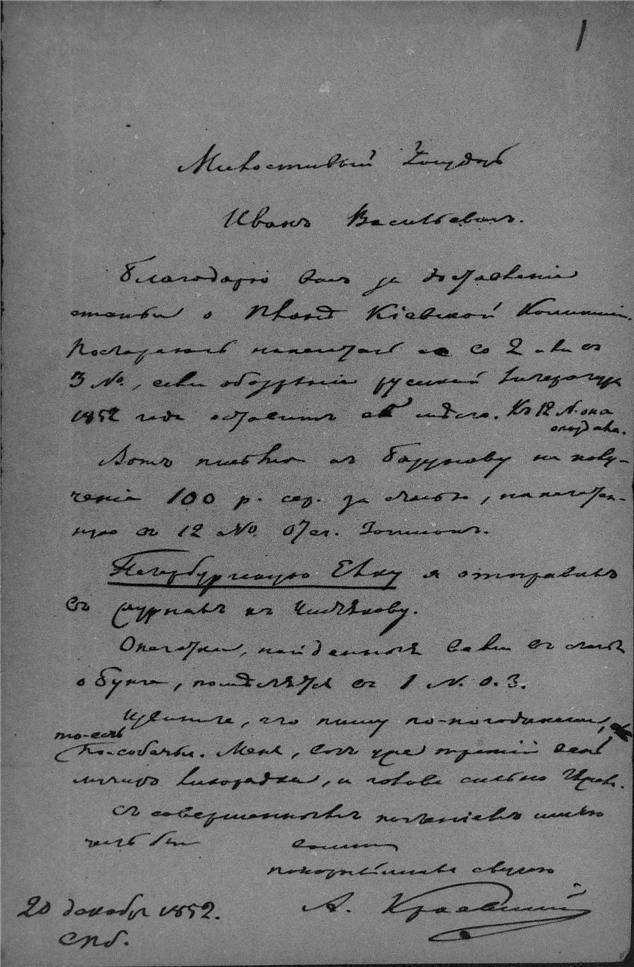 1
Милостивый Государь
Иванъ Васильевичъ.
Благодарю васъ за доставленіе
статьи о Кіевской Коммиссіи.
Постараюсь напечатать ее со 2 или въ
3 №, если обозрѣніе русской литературы
1852 года оставитъ ей мѣсто. Къ 12 № она
опоздала.
Вотъ письмо къ Базунову на полу-
ченіе 100 р. сер. за статью, напечатан-
ную въ 12 № Отеч. Записокъ.
Петербургскую Елку я отправилъ
въ журналъ къ Чистякову.
Опечатки, найденныя вами въ статьѣ
о Бунге, помѣстятся въ 1 № О. З.
Извините, что пишу по-погодински,
то-есть
по-собачьи. Меня, вотъ уже третій день
мучитъ лихорадка, и голова сильно
Съ совершеннымъ почтеніемъ имѣю
честь быть
вашимъ
покорнѣйшимъ слугою
А. Краевский
20 декабря 1852.
Спб.